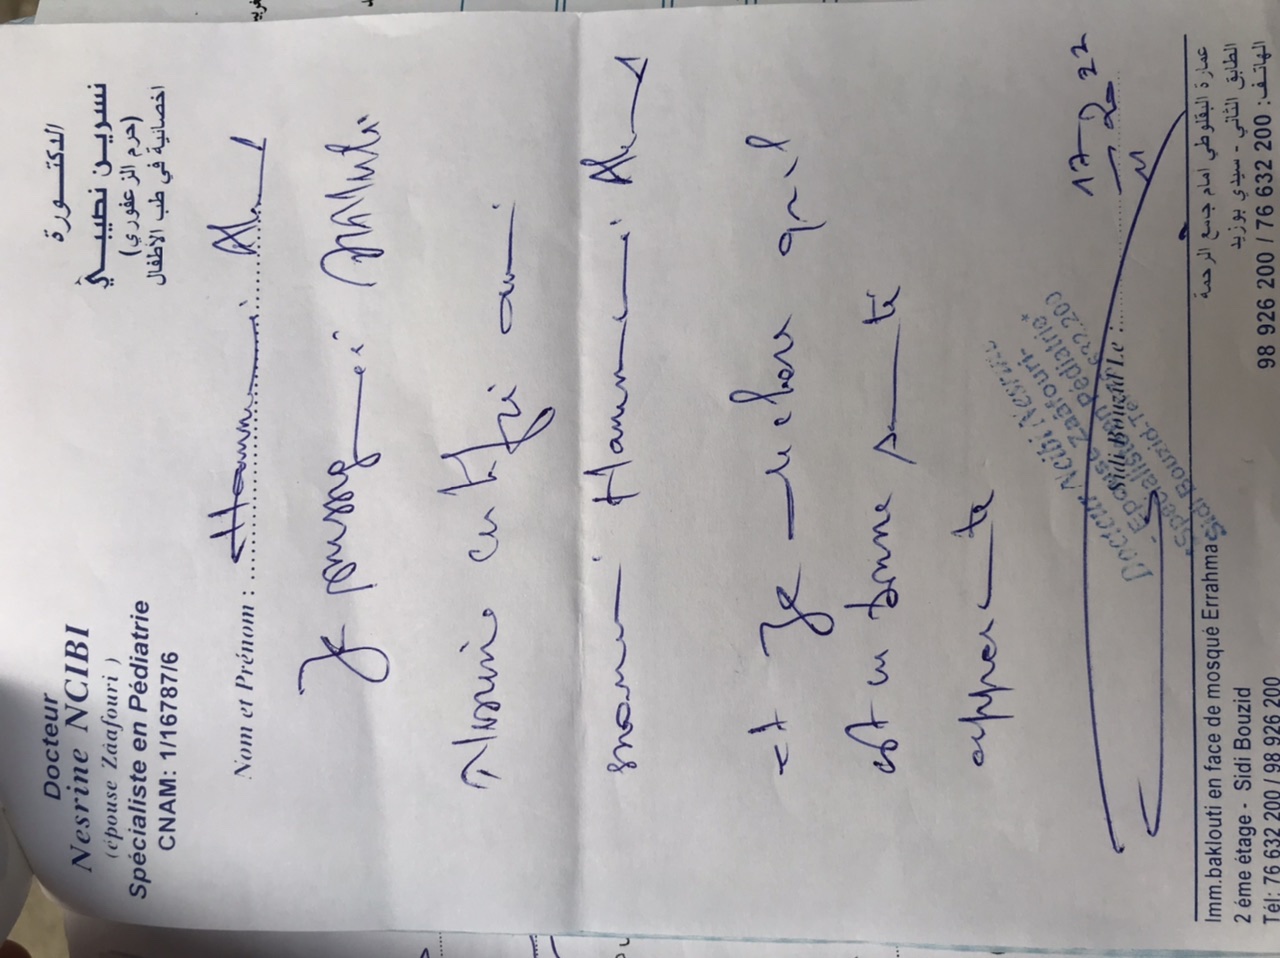 Docteur
Nesrine NCIBI
(épouse Zâafouri)
Spécialiste en Pédiatrie
CNAM: 1/16787/6
الدكتورة
نسرين نصيبي
(حرم الزعفوري)
اخصائية في طب الأطفال
Nom et Prénom :
Je soussigné
certifie avoir
examiné
et Je déclare qu'il
est en bonne santé
apparente
17-2-22
Sidi Bouzid Le :
Docteur Ncibi Nesrine
Epouse Zaafouri
Spécialiste en Pédiatrie
Imm.baklouti en face de mosqué Errahma
2 éme étage - Sidi Bouzid
Tél: 76 632 200 / 98 926 200
عمارة البقلوطي امام جامع الرحمة
الطابق الثاني - سيدي بوزيد
الهاتف: 76 632 200 / 98 926 200